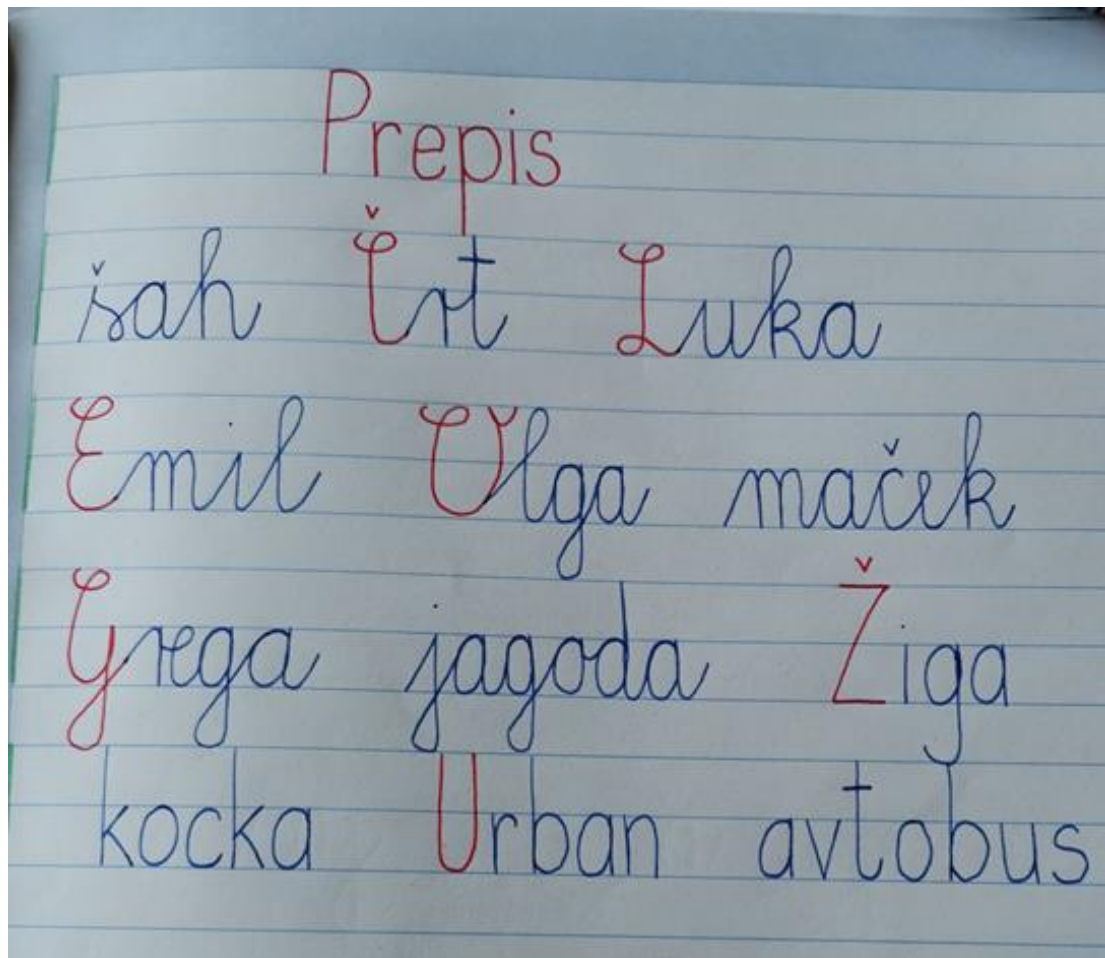 Prepis
šah Črt Luka
Emil Olga maček
Grega jagoda Žiga
kocka Urban avtobus